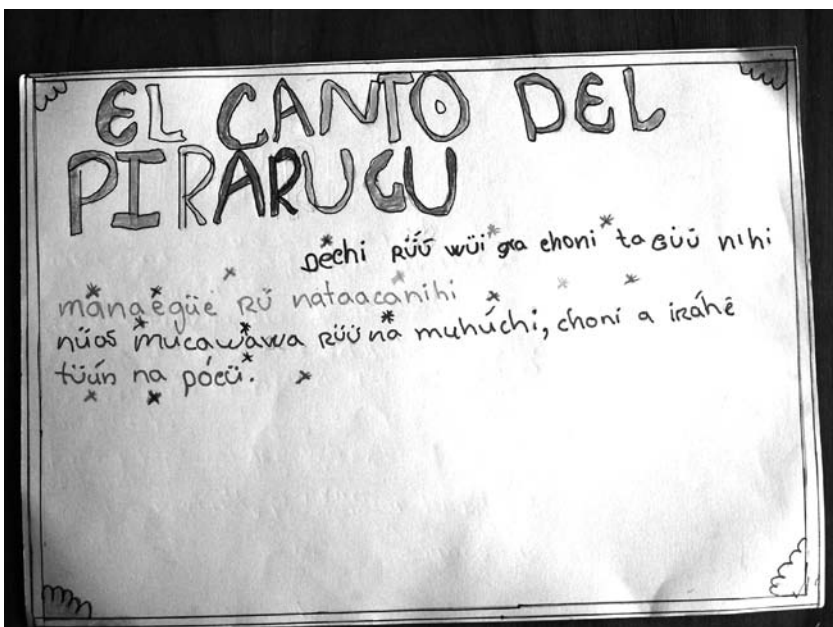 EL CANTO DEL
PIRARUCU
Dëchi Rüǘ wüi gra choni ta Güü nihi
mànaêgüe Rǘ nataacanihi
nǘos mucawawa Rüü na muhúchi, choni a iráhê
tüün na pócü.